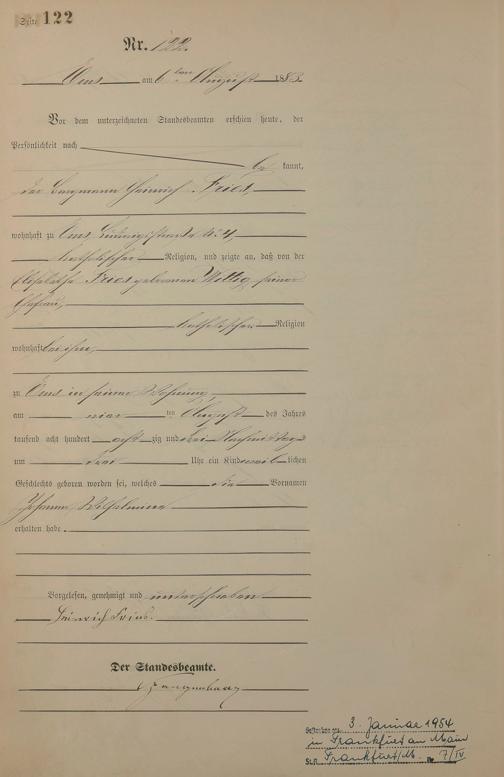 Seite 122
Nr. 122.
Ems am 6ten August 1883.
Vor dem unterzeichneten Standesbeamten erschien heute, der
Persönlichkeit nach
be kannt,
der Bergmann Heinrich Fries,
wohnhaft zu Ems, 
katholischer Religion, und zeigte an, daß von der
Elisabetha Fries geborenen Wittig seiner
Ehefrau,
katholischer Religion
wohnhaft bei ihm,
zu Ems in seiner Wohnung,
am vier ten August des Jahres
tausend acht hundert acht zig und drei Nachmittags
um drei Uhr ein Kind weib lichen
Geschlechts geboren worden sei, welches die Vornamen
Johanna Wilhelmina
erhalten habe.
Vorgelesen, genehmigt und unterschrieben
Heinrich Fries.
Der Standesbeamte.
3. Januar 1954
in Frankfurt am Main
St.A. Frankfurt/M. Nr. 7/IV